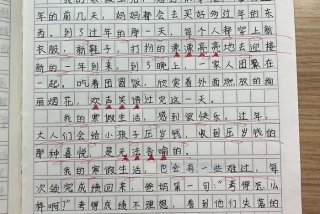 我的寒假生活，感到很开心，
年的前几天，妈妈都会去买好多过年的东
西。到了过年的那一天，每个人都穿上新
衣服，新鞋子，打扮的漂漂亮亮地去迎接
新的一年到来，到了晚上，一家人团聚在
一起，吃着团圆饭，欣赏着外面燃放的绚
丽烟花，欢声笑语过完这一天。
我的寒假生活，感到很快乐，过年，
大人们会给小孩子压岁钱，收到压岁钱的
那种喜悦是无法言喻的。
我的寒假生活，也会有一些难过，每
次领完成绩回来，他妈第一句“考得怎么
样啊？”考得成绩不理想，看到他们失落的